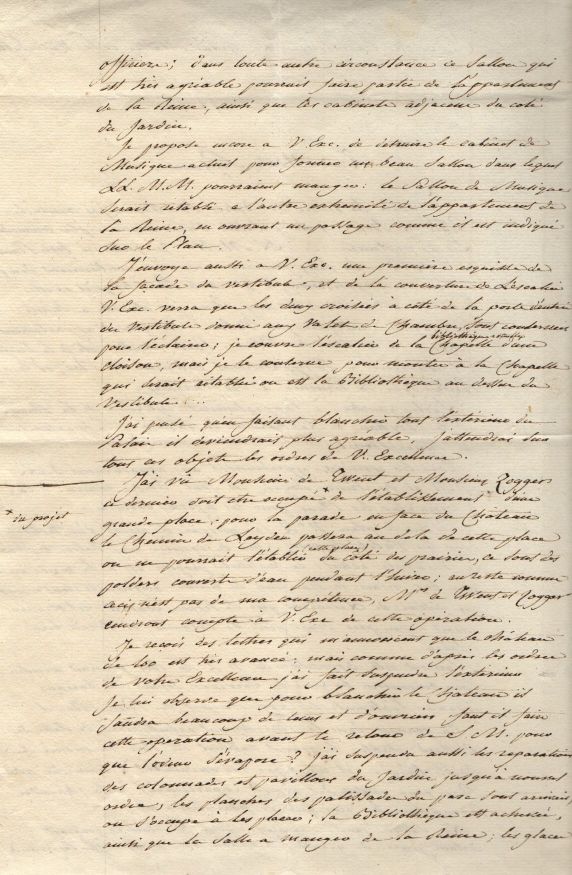 officiers; dans toute autre circonstance ce Sallon qui
est très agréable pourrait faire partie de l'appartement
de la Reine, ainsi que les cabinets adjacens du coté
du Jardin.
Je propose encore a V. Exc. de détruire le cabinet de
Musique actuel pour former un beau Sallon dans lequel
LL. M.M. pourraient manger: le Sallon de Musique
serait rétabli a l'autre extremité de l'appartement de
la Reine, en ouvrant un passage comme il est indiqué
sur le Plan.
J'envoye aussi a V. Exc. une premiere esquisse de
la façade du vestibule, et de la couverture de l'escalier
V. Exc. verra que les deux croisées a coté de la porte d'entrée
du vestibule donné aux Valets de Chambre, sont conservées
pour l'éclairer; je couvre l'escalier de la Chapelle d'une
bibliothèque
cloison, mais je le conserve pour monter à la Chapelle
qui serait rétablie ou est la Bibliothèque au dessus du
Vestibule ...
J'ai pensé qu'en faisant blanchir tout l'extérieur du
Palais il deviendrait plus agréable, j'attendrai sur
tous ces objets les ordres de V. Excellence.
J'ai vu Monsieur de Twent et Monsieur Zogger
ce dernier doit etre occupé * de l'établissement d'une
* du projet
grande place, pour la parade en face du Château
le Chemin de Leyden passera au dela de cette place
on ne pourrait l'établir (cette place) du coté des prairies, ce sont des
polders couverts d'eau pendant l'hiver; au reste comme
ceci n'est pas de ma compétence, Mrs de Twent et Zogger
rendront compte a V. Exc de cette opération.
Je reçois des lettres qui m'annoncent que le château
de Loo est très avancé; mais comme d'après les ordres
de votre Excellence j'ai fait suspendre l'extérieur
Je lui observe que pour blanchir le Château il
faudra beaucoup de tems et d'ouvriers faut il faire
cette opération avant le retour de S. M. pour
que l'odeur s'évapore? j'ai suspendu aussi les réparations
des colonnades et pavillons du Jardin jusqu'à nouvel
ordre, les planches des palissades du parc sont arrivées,
on s'occupe à les placer; la Bibliothèque est achevée,
ainsi que la Salle a manger de la Reine; les glaces